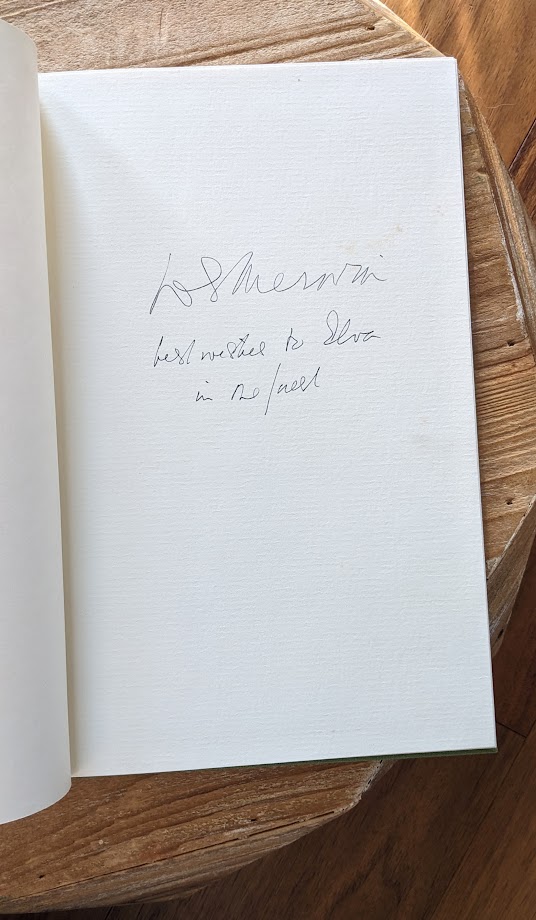 WS Merwin
best wishes to Elva
in the